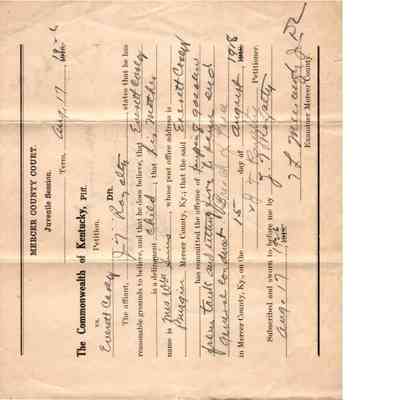 MERCER COUNTY COURT.
Juvenile Session.
Term, Aug. 17, 19
The Commonwealth of Kentucky, Plf.
vs. Petition.
Everett Casey Dft.
The affiant, J. T. Royalty, states that he has
reasonable grounds to believe, and that he does believe, that Everett Casey
is a delinquent child; that his Mother
name is Mrs Wm Sims, whose post office address is
Burgin Mercer County, Ky.; that the said Everett Casey
has committed the offense of
from tank and setting fire to
general conduct
in Mercer County, Ky., on the 15 day of August 1918
J. T. Royalty Petitioner.
Subscribed and sworn to before me by J. T. Royalty
Aug. 17
Examiner Mercer County.